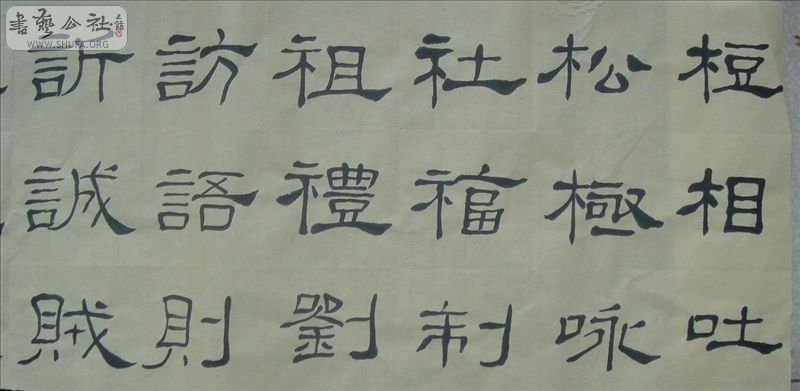 書藝公社
WWW.SHUFA.ORG
桓相吐
松極咏
社福制
祖禮劉
訪語則
訢誠賊